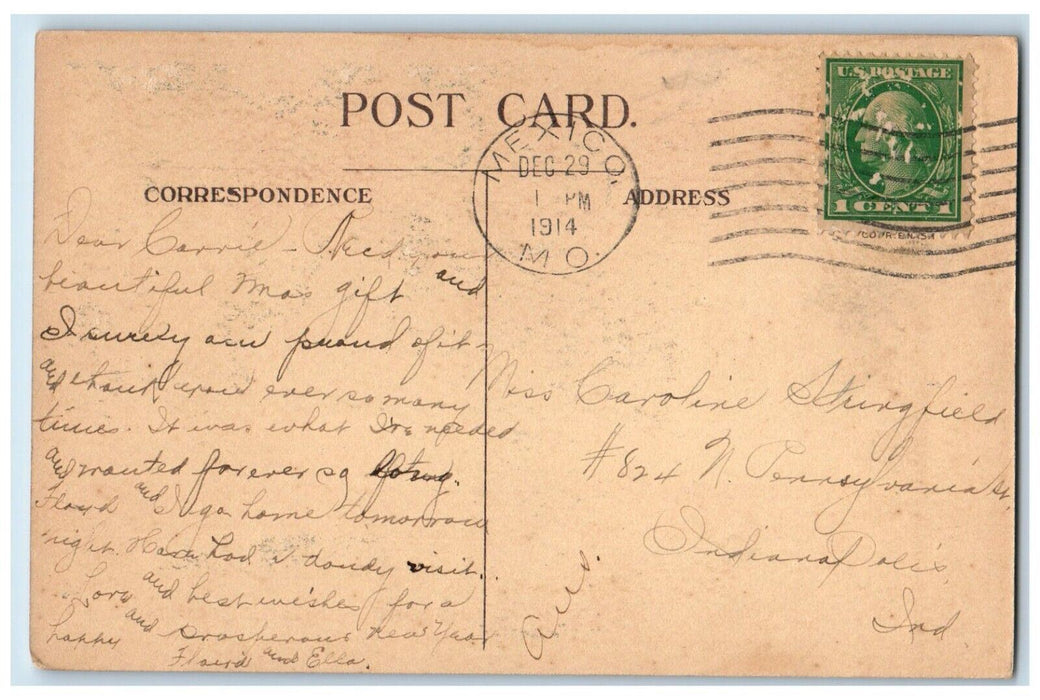 POST CARD.
MEXICO,
DEC 29
1 PM
1914
MO.
U.S. POSTAGE
1 CENT 1
CORRESPONDENCE
ADDRESS
Dear Carrie - Recd your
beautiful Xmas gift and
I surely am proud of it -
and thank you ever so many
times. It was what I've needed
and wanted forever so long.
Floyd and I go home tomorrow
night. Have had a dandy visit.
Love and best wishes for a
happy and prosperous new Year
Floyd and Ella.
Miss Caroline Stringfield
#824 N. Pennsylvania St.
Indianapolis,
Ind